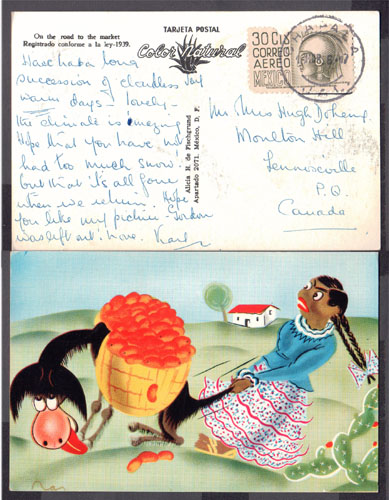 TARJETA POSTAL
On the road to the market
Registrado conforme a la ley-1939.
Color Natural
Have had a long
succession of cloudless
warm days - lovely -
the climate is amazing
Hope that you have not
had too much snow.
but that it's all gone
when we return. Hope
you like my picture
was left out. Love.
Alicia H. de Fischgrund
Apartado 2071. México, D. F.
30 CTS
CORREO
AEREO
MEXICO
Mr Mrs Hugh Doheny.
Moulton Hill
Lennoxville
P.Q.
Canada